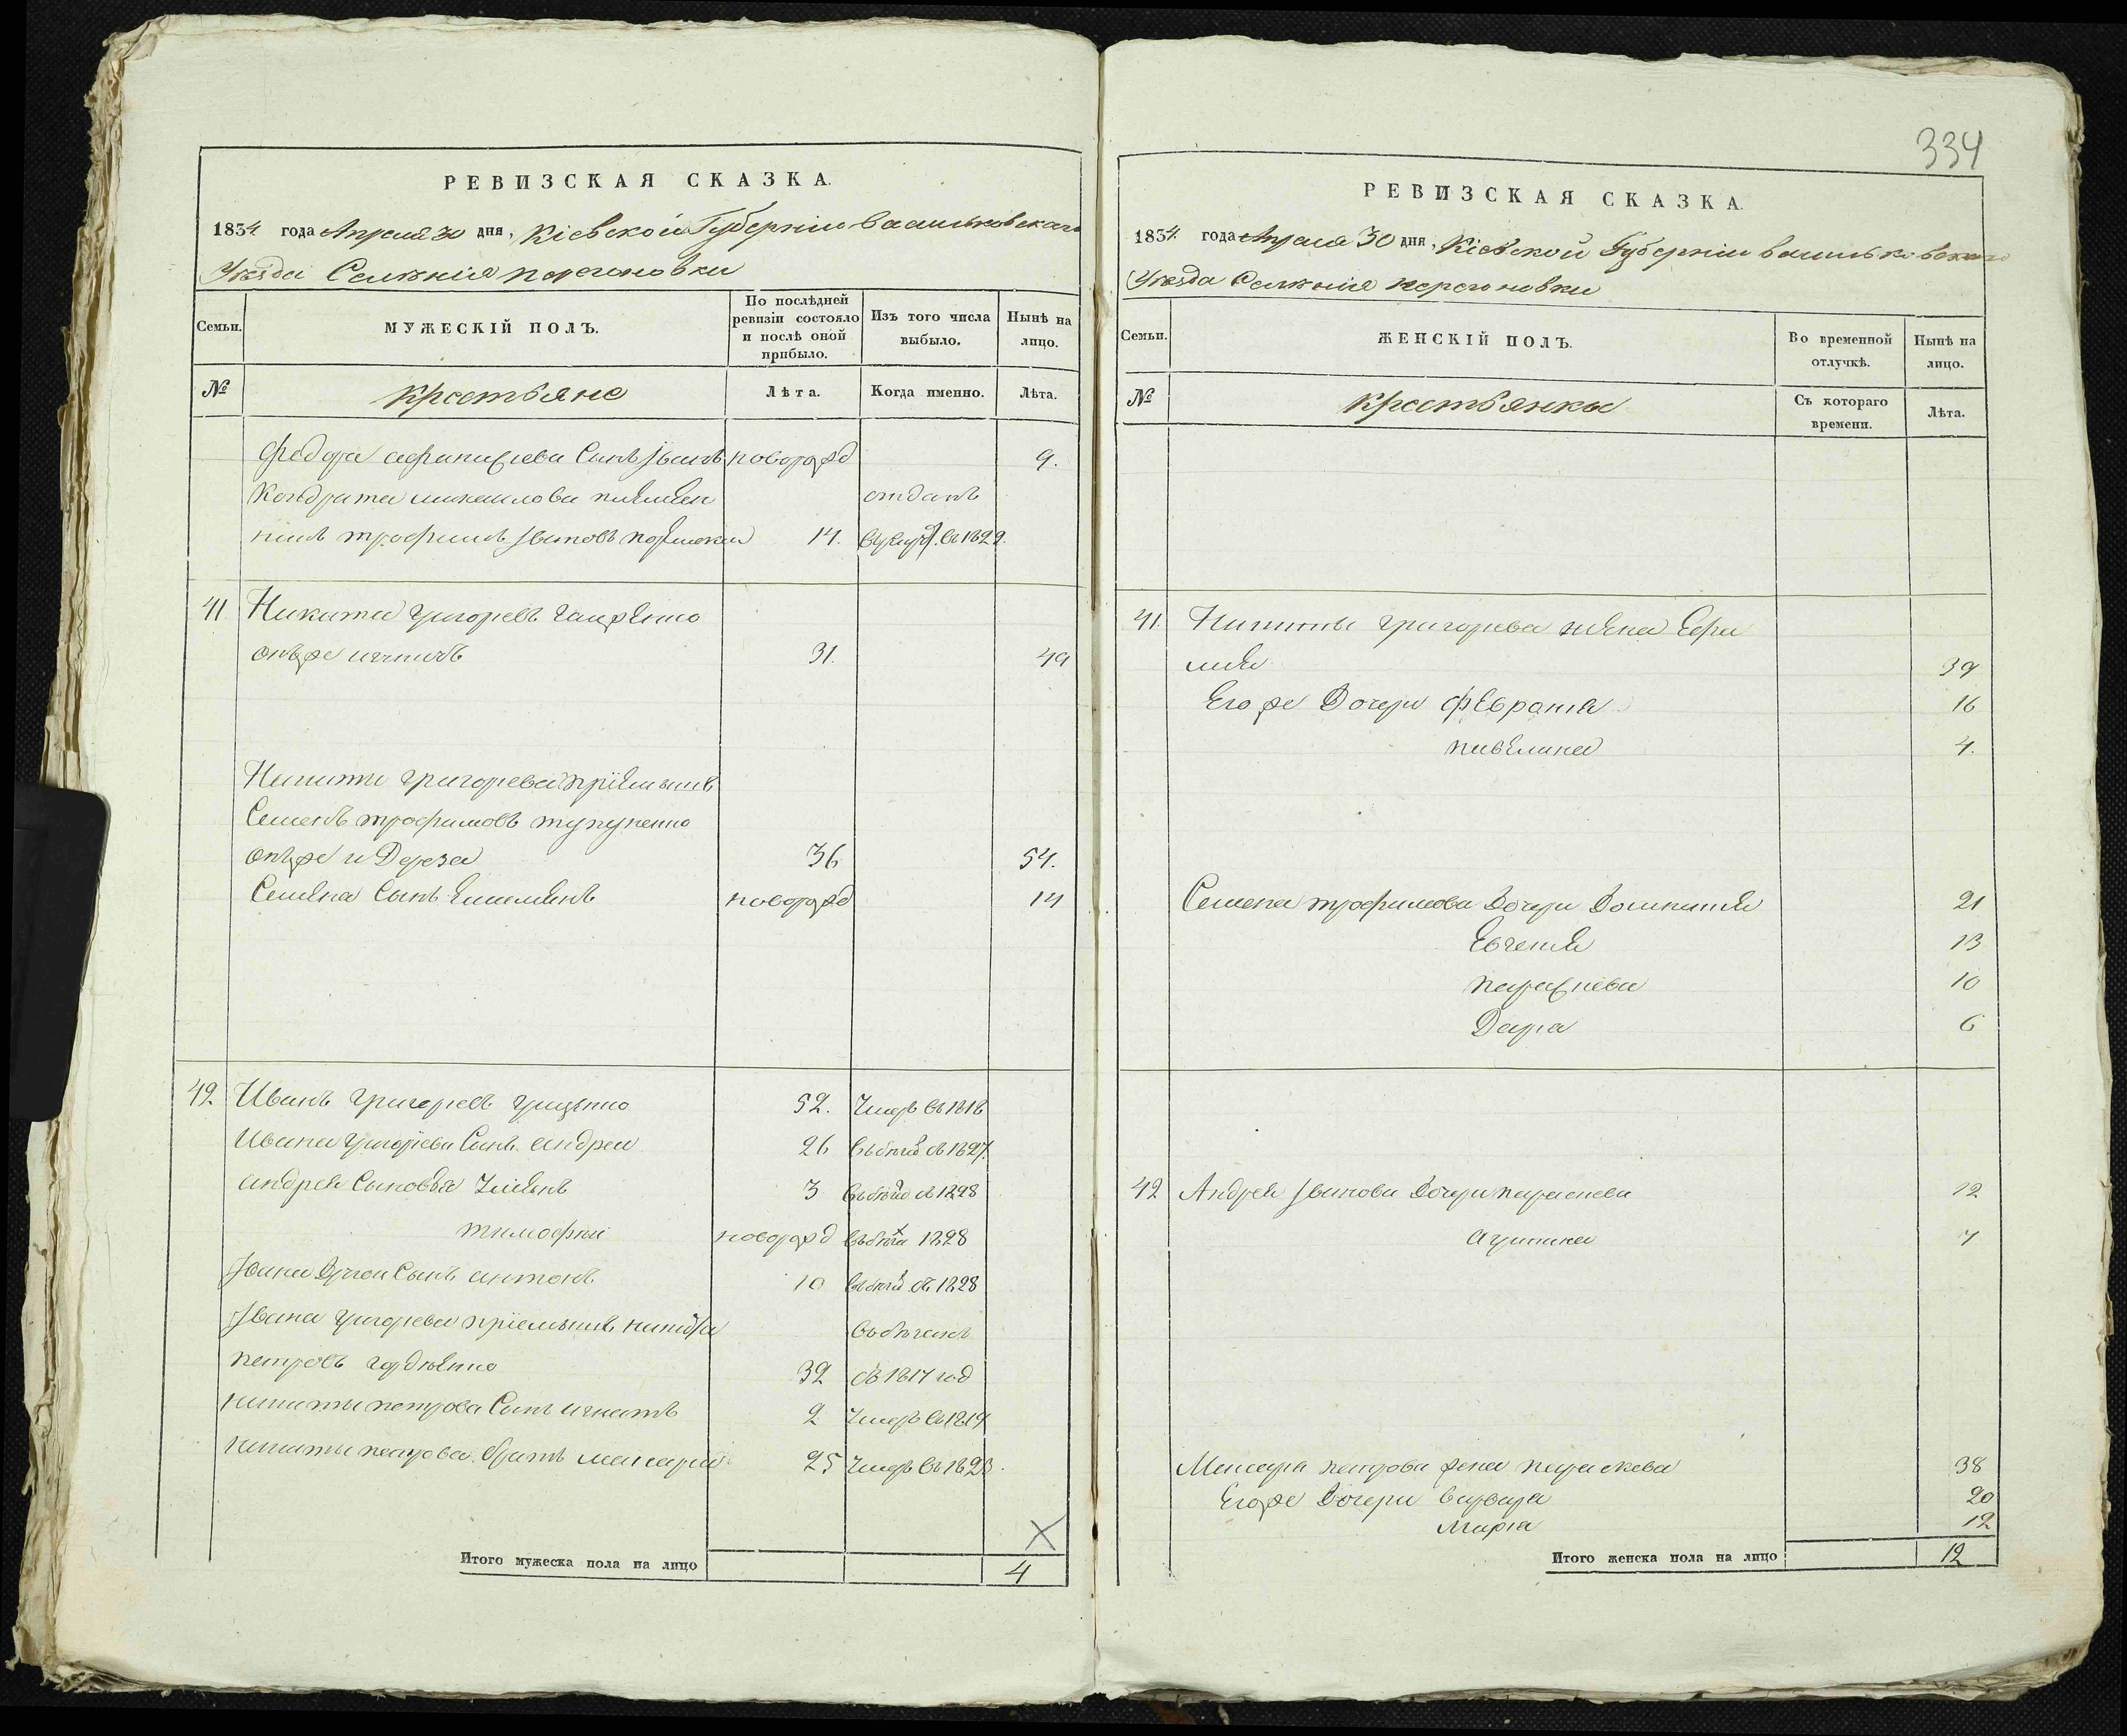 РЕВИЗСКАЯ СКАЗКА.
1834 года Апреля 30 дня, Кіевской Губерніи Васильковскаго
Уезда Селенія Пересоновки
Семьи.
МУЖЕСКІЙ ПОЛЪ.
По послѣдней ревизіи состояло и послѣ оной прибыло.
Изъ того числа выбыло.
Нынѣ на лицо.
№
крестьяне
Лѣта.
Когда именно.
Лѣта.
Федора Сынъ Іванъ новорожд 9.
Кондрата михаилова племен отданъ
никъ трофимъ Івановъ 14. въ 1829.
41 Никита григорьевъ
онъже 31. 49
Никиты григорьева пріемышъ
Семенъ трофимовъ
онъже и Дереза 36 54.
Семена Сынъ новорожд 14
42 Иванъ григорьевъ гриценко 52. Умеръ въ 1818
Ивана григорьева Сынъ андрей 26 въ бегах съ 1827.
андрея Сыновья 3 въ бегах съ 1828
тимофей новорожд въ бегах 1828
Івана Другой Сынъ антонъ 10 въ бегах съ 1828
Івана григорьева пріемышъ никита
петровъ гордіенко 32 съ 1817 год
никиты петрова Сынъ игнатъ 2 Умеръ въ 1819
никиты петрова братъ макаръ 25 Умеръ въ 1823.
Итого мужеска пола на лицо 4
334
РЕВИЗСКАЯ СКАЗКА.
1834 года Апреля 30 дня, Кіевской Губерніи Васильковскаго
Уезда Селенія пересоновки
Семьи.
ЖЕНСКІЙ ПОЛЪ.
Во временной отлучкѣ.
Нынѣ на лицо.
№
крестьянки
Съ котораго времени.
Лѣта.
41. Никиты григорьева жена Ефи
мия 39
Его же Дочери феврания 16
павлина 4.
Семена трофимова Дочери Домникия 21
Евгения 13
параскева 10
Дарა 6
42 Андрея Іванова Дочери параскева 12
акулина 7
Макара петрова жена параскева 38
Его же Дочери варвара 20
Марія 12
Итого женска пола на лицо 12